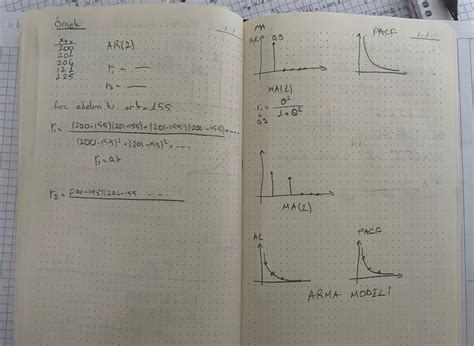 Örnek
200
201
204
121
125
AR(2)
r₁ = —
r₂ = —
farz edelim ki ort = 155
r₁ = (200-155)(201-155)+(201-155)(204-155)+ ....
(200-155)² + (201-155)² + ....
r₁ = 0.8
r₂ = (200-155)(204-155 ... ...
MA
AR
0.9
PACF
MA(1)
r₁ = θ²
1+θ²
0.9
MA(2)
AC
PACF
ARMA MODELİ